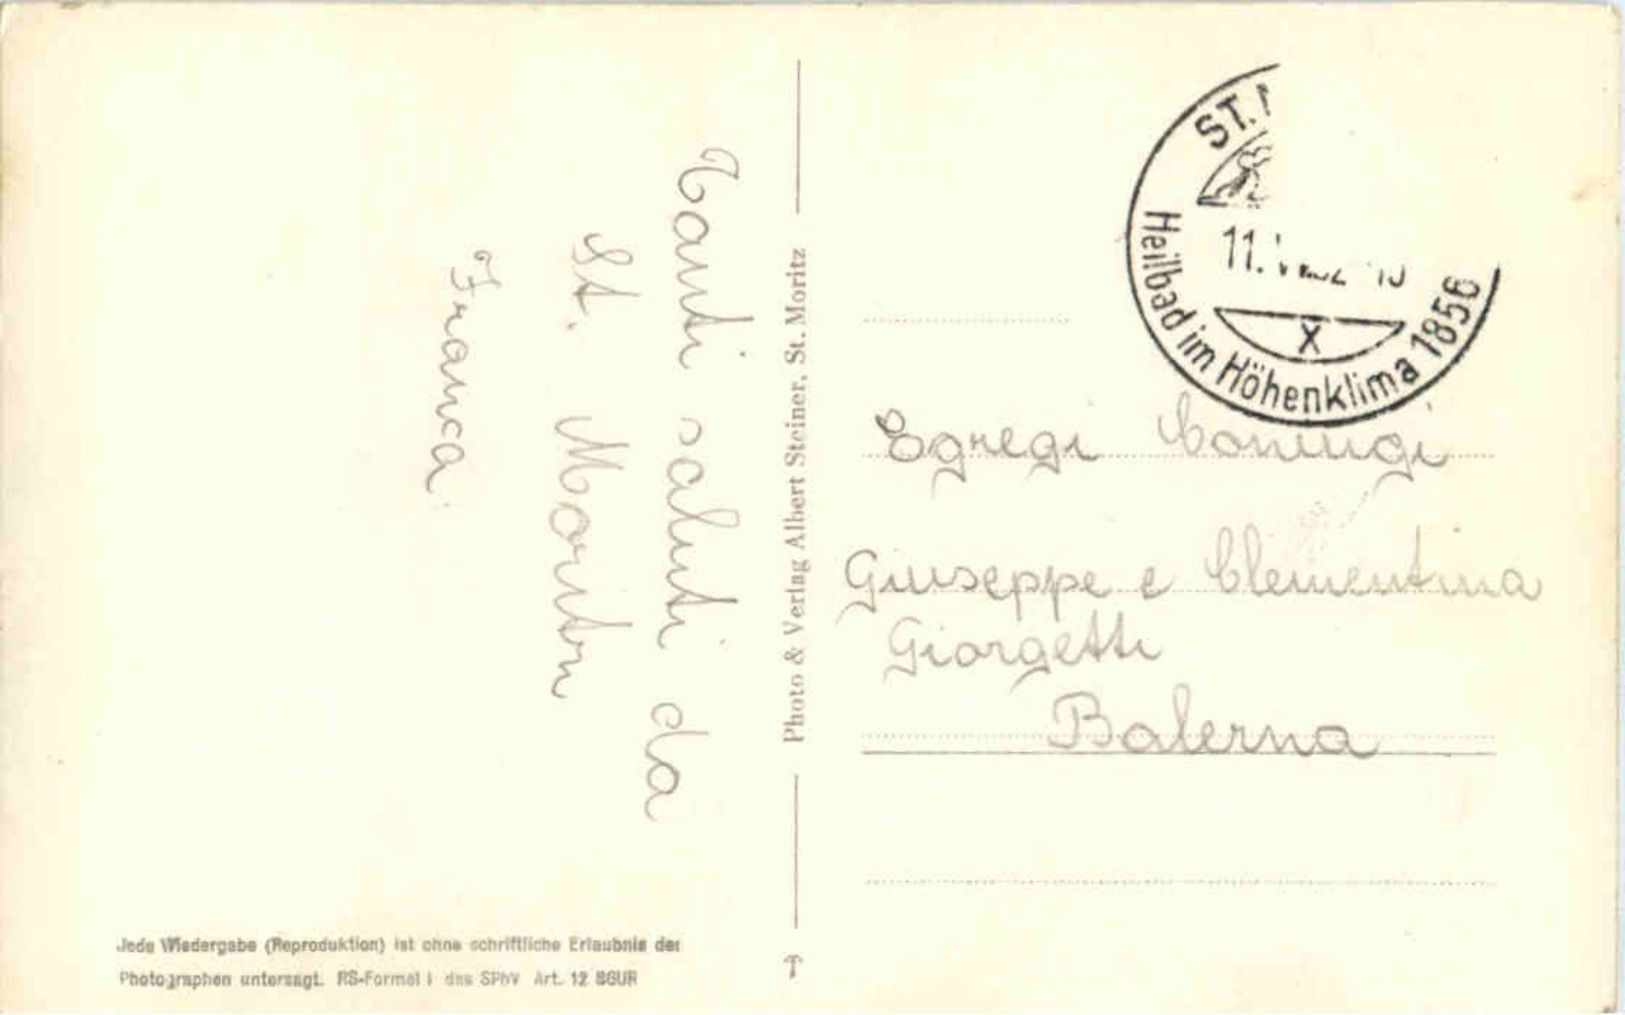 Tanti saluti da
St. Moritz
Franca
Photo & Verlag Albert Steiner, St. Moritz
Jede Wiedergabe (Reproduktion) ist ohne schriftliche Erlaubnis des
Photographen untersagt. RS-Formel I des SPhV Art. 12 BGUR
ST.
11.
X
Heilbad im Höhenklima 1856
Egregi Coniugi
Giuseppe e Clementina
Giorgetti
Balerna